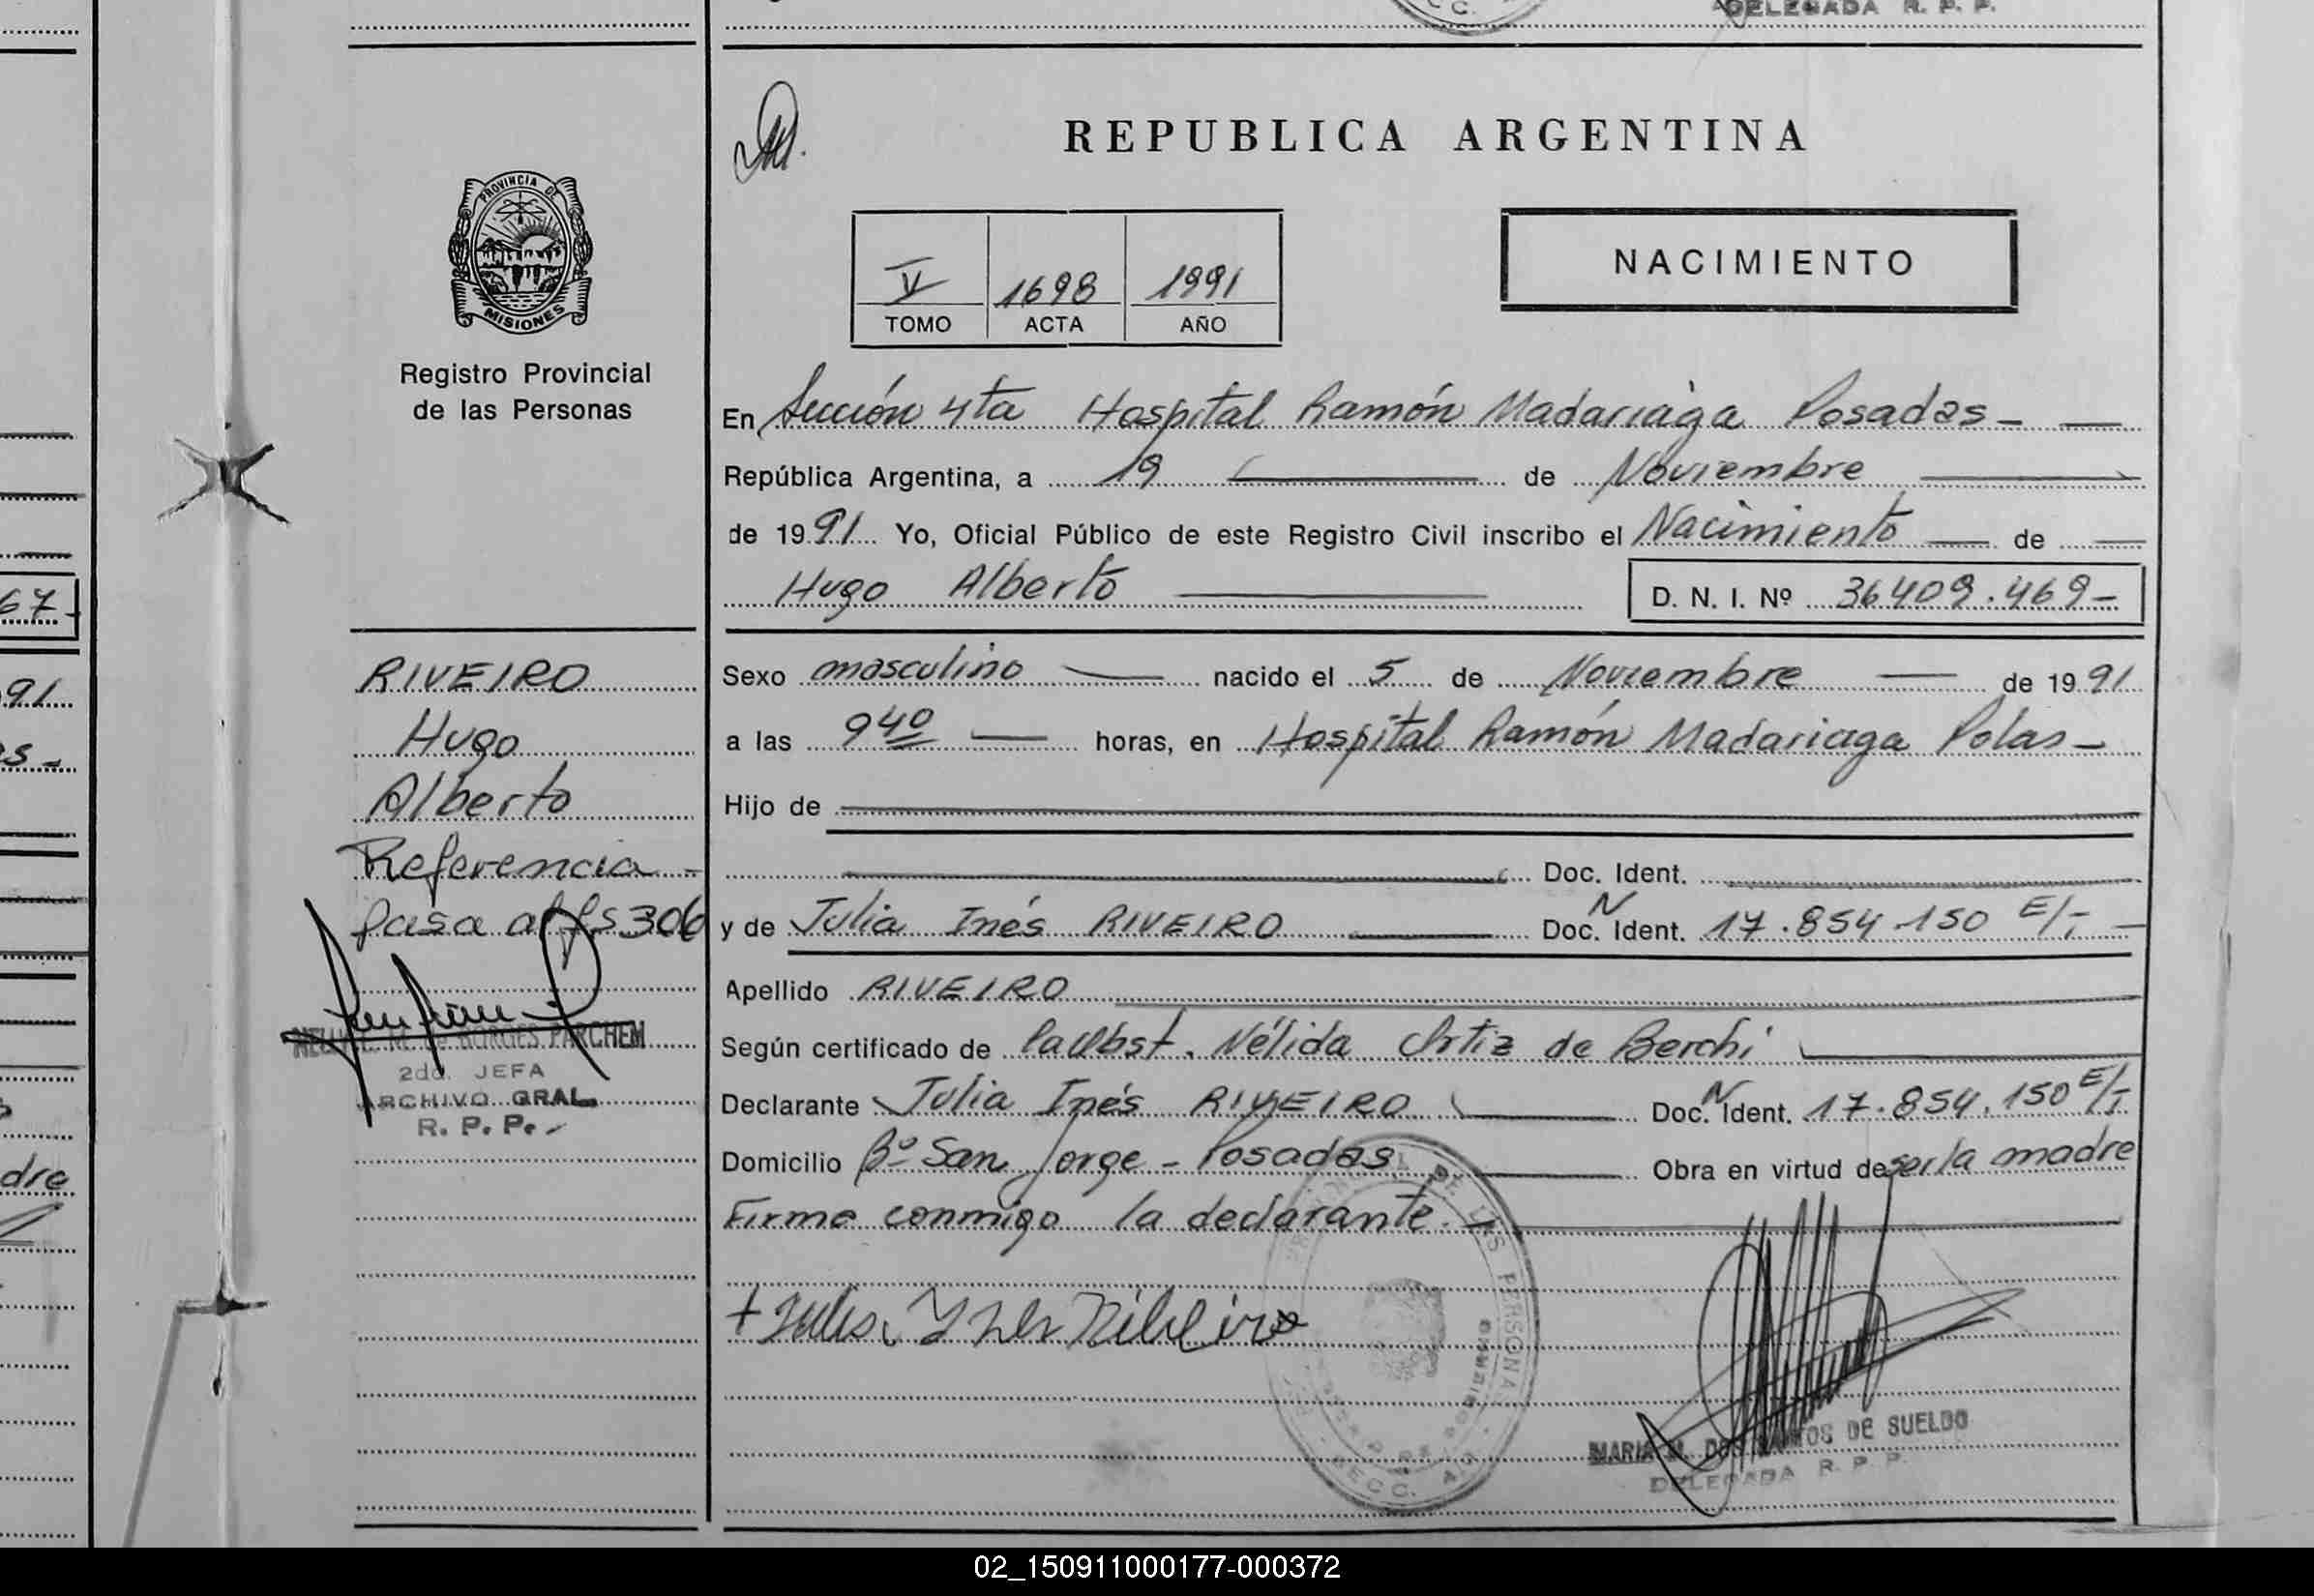 DELEGADA R. P. P.
C.
REPUBLICA ARGENTINA
PROVINCIA DE
MISIONES
NACIMIENTO
V 1698 1991
TOMO ACTA AÑO
Registro Provincial
de las Personas
En Sección 4ta Hospital Ramón Madariaga Posadas -
República Argentina, a 19 de Noviembre
de 1991 Yo, Oficial Público de este Registro Civil inscribo el Nacimiento de
Hugo Alberto D. N. I. Nº 36409.469-
67-
RIVEIRO
Hugo
Alberto
Referencia -
pasa al fs 306
2da. JEFA
ARCHIVO GRAL.
R. P. P.
91
s -
dre
Sexo masculino nacido el 5 de Noviembre de 1991
a las 9 40 horas, en Hospital Ramón Madariaga Pdas -
Hijo de
Doc. Ident.
y de Julia Inés RIVEIRO Doc. N Ident. 17.854.150 E/.-
Apellido RIVEIRO
Según certificado de la Obst. Nélida Ortiz de Berchi
Declarante Julia Inés RIVEIRO Doc. N Ident. 17.854.150 E/.-
Domicilio Bº San Jorge - Posadas Obra en virtud de ser la madre
Firma conmigo la declarante. -
DE LAS PERSONAS
SECC.
MARIA M. DOS SANTOS DE SUELDO
DELEGADA R. P. P.
02_150911000177-000372